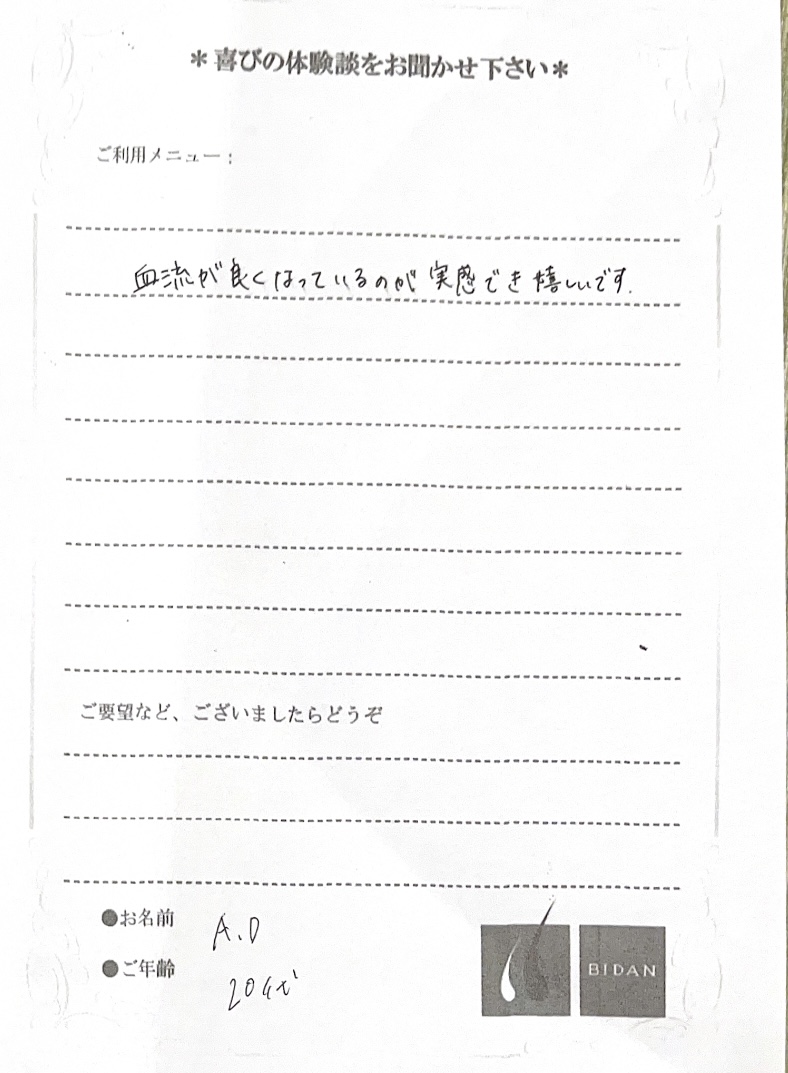 ＊喜びの体験談をお聞かせ下さい＊
ご利用メニュー：
血流が良くなっているのが実感でき嬉しいです.
ご要望など、ございましたらどうぞ
●お名前 A.D
●ご年齢 20代
BIDAN